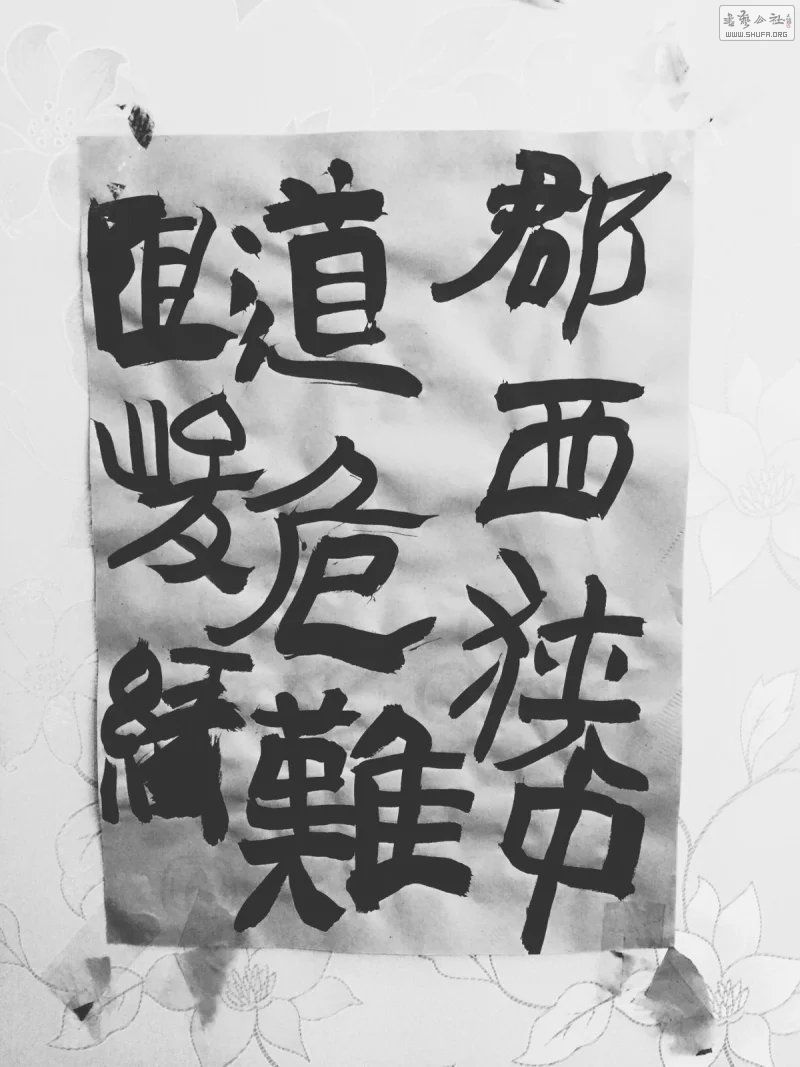 郡西狹中
道危難
阻峻緣
書藝公社
WWW.SHUFA.ORG